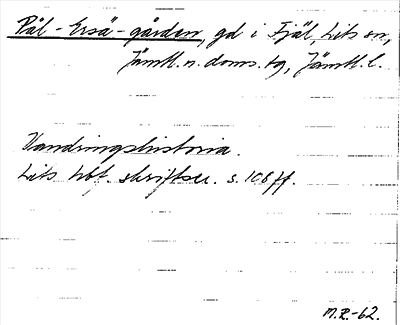 Pål-Ersä-gården, gd i Fjäl, Lits sn,
Jämtl. n. doms. tg, Jämtl. l.
Vandringshistoria.
Lits hbf. skriftser. s. 108 ff.
M.R.-62.